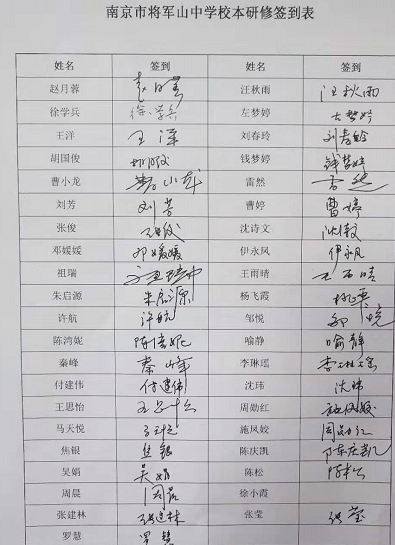 南京市将军山中学校本研修签到表
姓名 签到 姓名 签到
赵月蓉 汪秋雨 汪秋雨
徐学兵 徐学兵 左梦婷 左梦婷
王洋 王洋 刘春玲 刘春玲
胡国俊 钱梦婷 钱梦婷
曹小龙 曹小龙 雷然 雷然
刘芳 刘芳 曹婷 曹婷
张俊 张俊 沈诗文
邓媛媛 邓媛媛 伊永风 伊永风
祖瑞 王雨晴 王雨晴
朱启源 朱启源 杨飞霞
许航 许航 邹悦
陈湾妮 喻静 喻静
秦峰 秦峰 李琳瑶
付建伟 付建伟 沈玮 沈玮
王思怡 周勋红 施凤姣
马天悦 施凤姣 周勋红
焦银 焦银 陈庆凯 陈庆凯
吴娟 吴娟 陈松 陈松
周晨 周晨 徐小霞
张建林 张建林 张莹 张莹
罗慧 罗慧